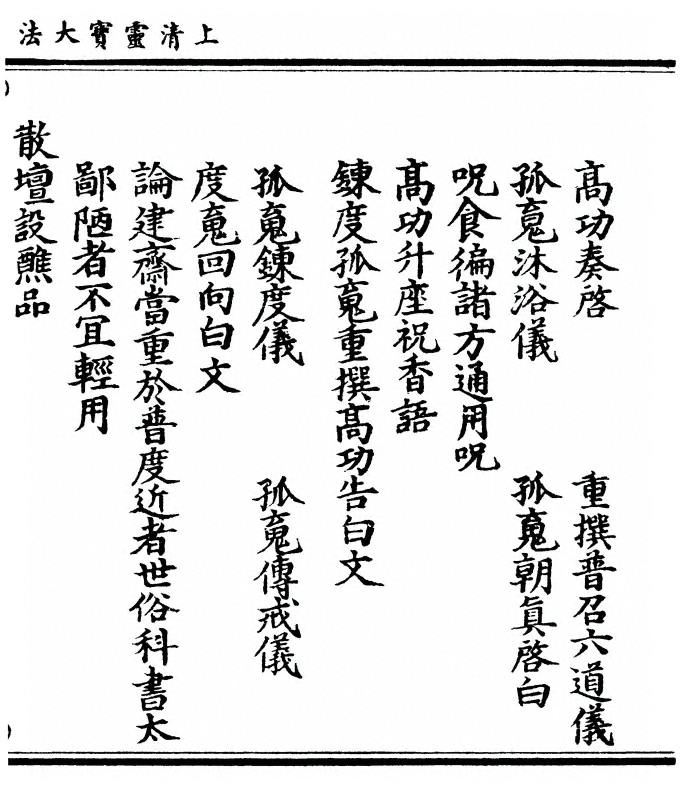 上清靈寶大法
高功奏啓　重撰普召六道儀
孤䰟沐浴儀　孤䰟朝眞啓白
呪食徧諸方通用呪
高功升座祝香語
鍊度孤䰟重撰高功告白文
孤䰟鍊度儀　孤䰟傳戒儀
度䰟回向白文
論建齋當重於普度近者世俗科書太
鄙陋者不冝輕用
散壇設醮品